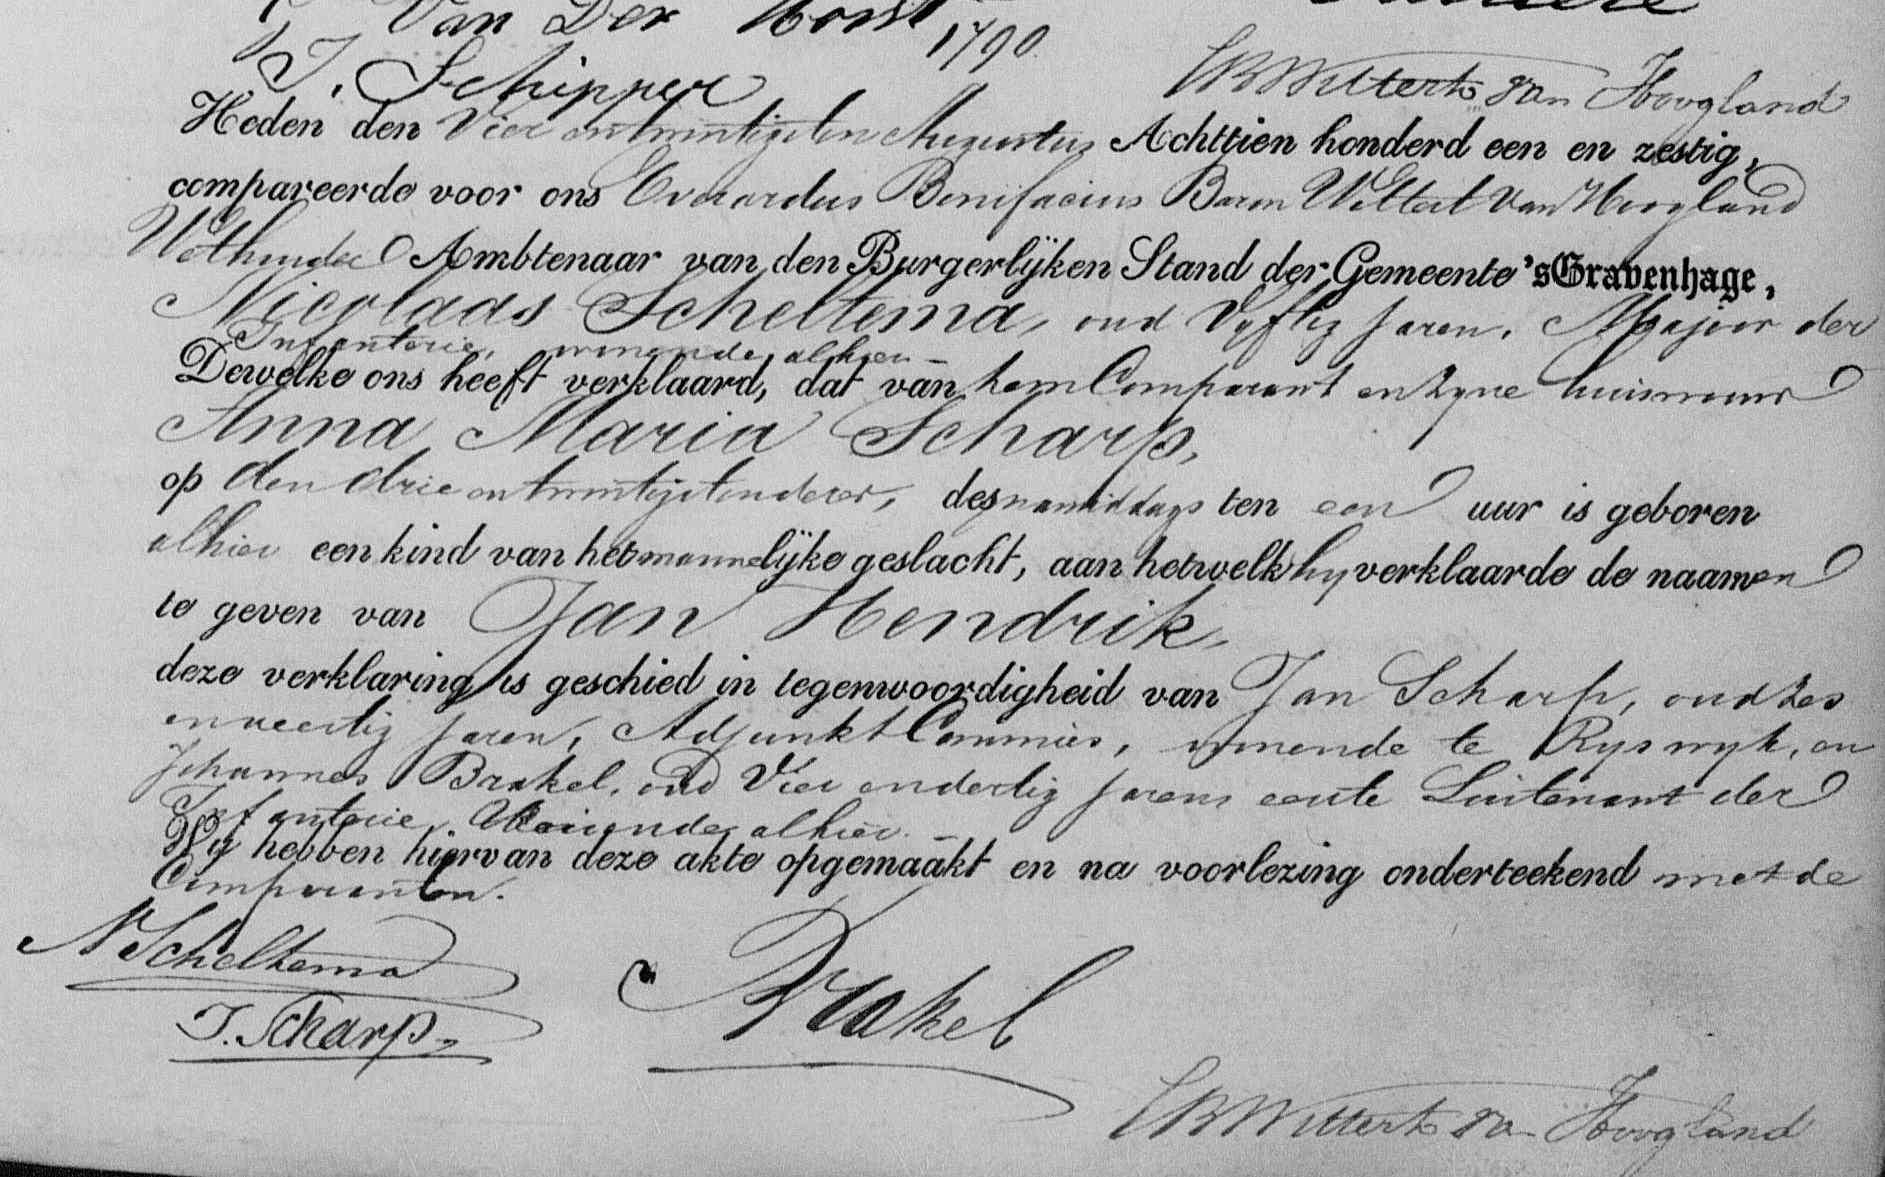 Van Der Horst
1790.
J. Schipper
EBWittert van Hoogland
Heden den Vier en twintigsten Augustus Achttien honderd een en zestig,
compareerde voor ons Everardus Bonifacius Baron Wittert van Hoogland
Wethouder Ambtenaar van den Burgerlijken Stand der Gemeente 'sGravenhage,
Nicolaas Scheltema, oud Vyftig jaren, Majoor der
Infanterie, wonende alhier –
Dewelke ons heeft verklaard, dat van hem Comparant en Zyne huisvrouw
Anna Maria Scharp,
op den drie en twintigsten dezer, des namiddags ten een uur is geboren
alhier een kind van het mannelijke geslacht, aan hetwelk hy verklaarde de naamen
te geven van Jan Hendrik,
deze verklaring is geschied in tegenwoordigheid van Jan Scharp, oud Zes
en veertig jaren, Adjunkt Commies, wonende te Ryswyk, en
Johannes Brakel, oud Vier en dertig jaren, eerste Luitenant der
Infanterie, Wonende alhier. –
Wij hebben hiervan deze akte opgemaakt en na voorlezing onderteekend met de
Comparanten.
N Scheltema
J. Scharp
Brakel
EBWittert van Hoogland